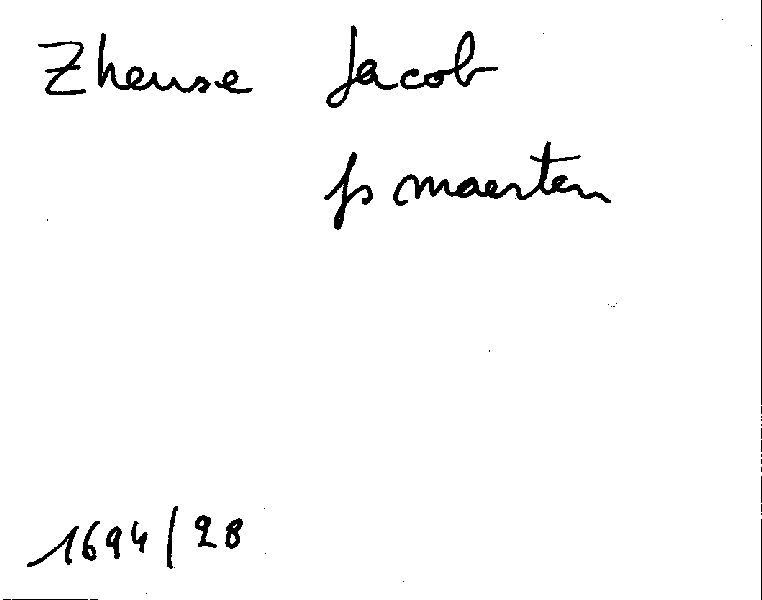 Zheuse Jacob
fs maerten
1694/28